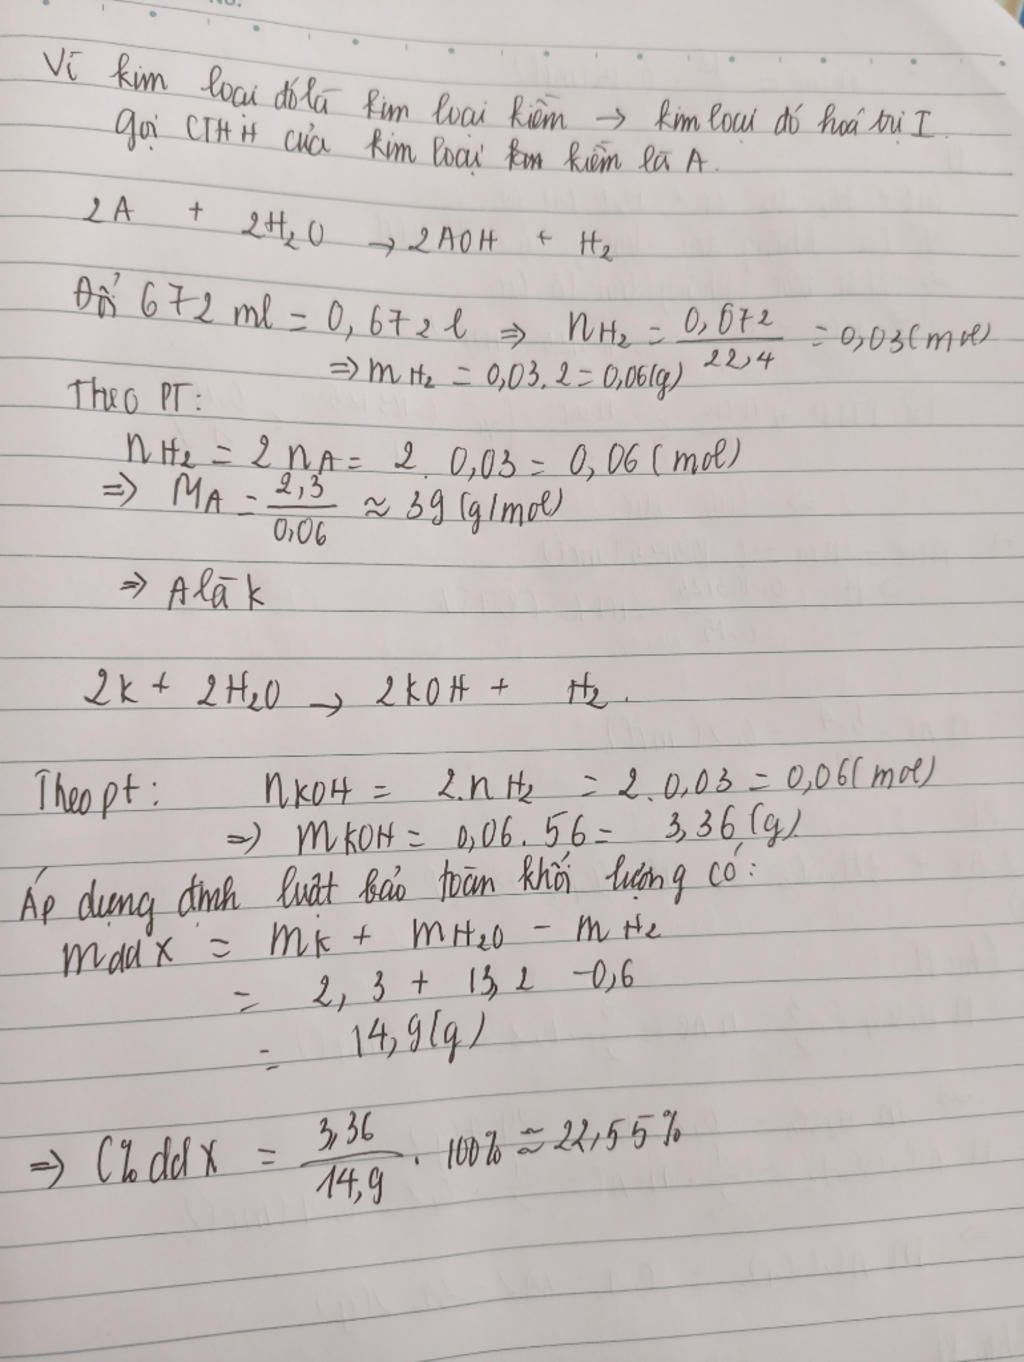 Vì kim loại đó là kim loại kiềm → kim loại đó hoá trị I.
gọi CTHH của kim loại kiềm là A.
2A + 2H₂O → 2AOH + H₂
Đổi 672 ml = 0,672 l ⇒ nH₂ = 0,672/22,4 = 0,03 (mol)
⇒ mH₂ = 0,03.2 = 0,06(g)
Theo PT:
nH₂ = 2 nA = 2.0,03 = 0,06 (mol)
⇒ MA = 2,3/0,06 ≈ 39 (g/mol)
⇒ A là K
2K + 2H₂O → 2KOH + H₂.
Theo pt: nKOH = 2.nH₂ = 2.0,03 = 0,06(mol)
⇒ mKOH = 0,06.56 = 3,36 (g)
Áp dụng định luật bảo toàn khối lượng có:
mdd X = mK + mH₂O - mH₂
= 2,3 + 13,2 - 0,6
= 14,9(g)
⇒ C% dd X = 3,36/14,9 . 100% ≈ 22,55%